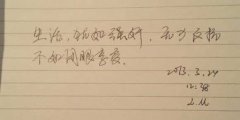 生活,犹如强奸,无力反抗
不如闭眼享受。
2013.3.24
12:38